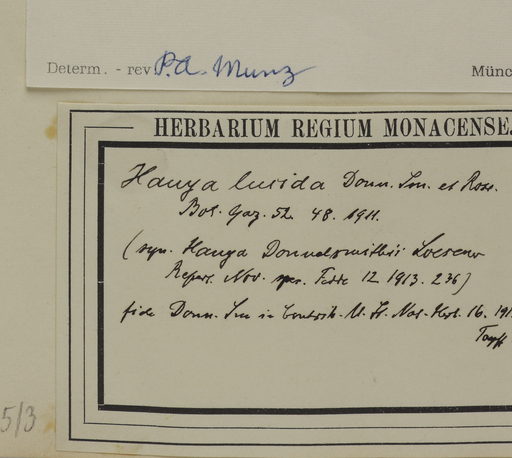 Determ. - rev P.A. Munz Münc
HERBARIUM REGIUM MONACENSE.
Hauya lucida Donn. Sm. et Rose.
Bot. Gaz. 52. 48. 1911.
(syn. Hauya Donnelsmithii Loesener
Repert. Nov. spec. Fedde 12 1913. 236)
fide Donn. Sm in Contrib. U. St. Nat. Herb. 16. 191
5/3